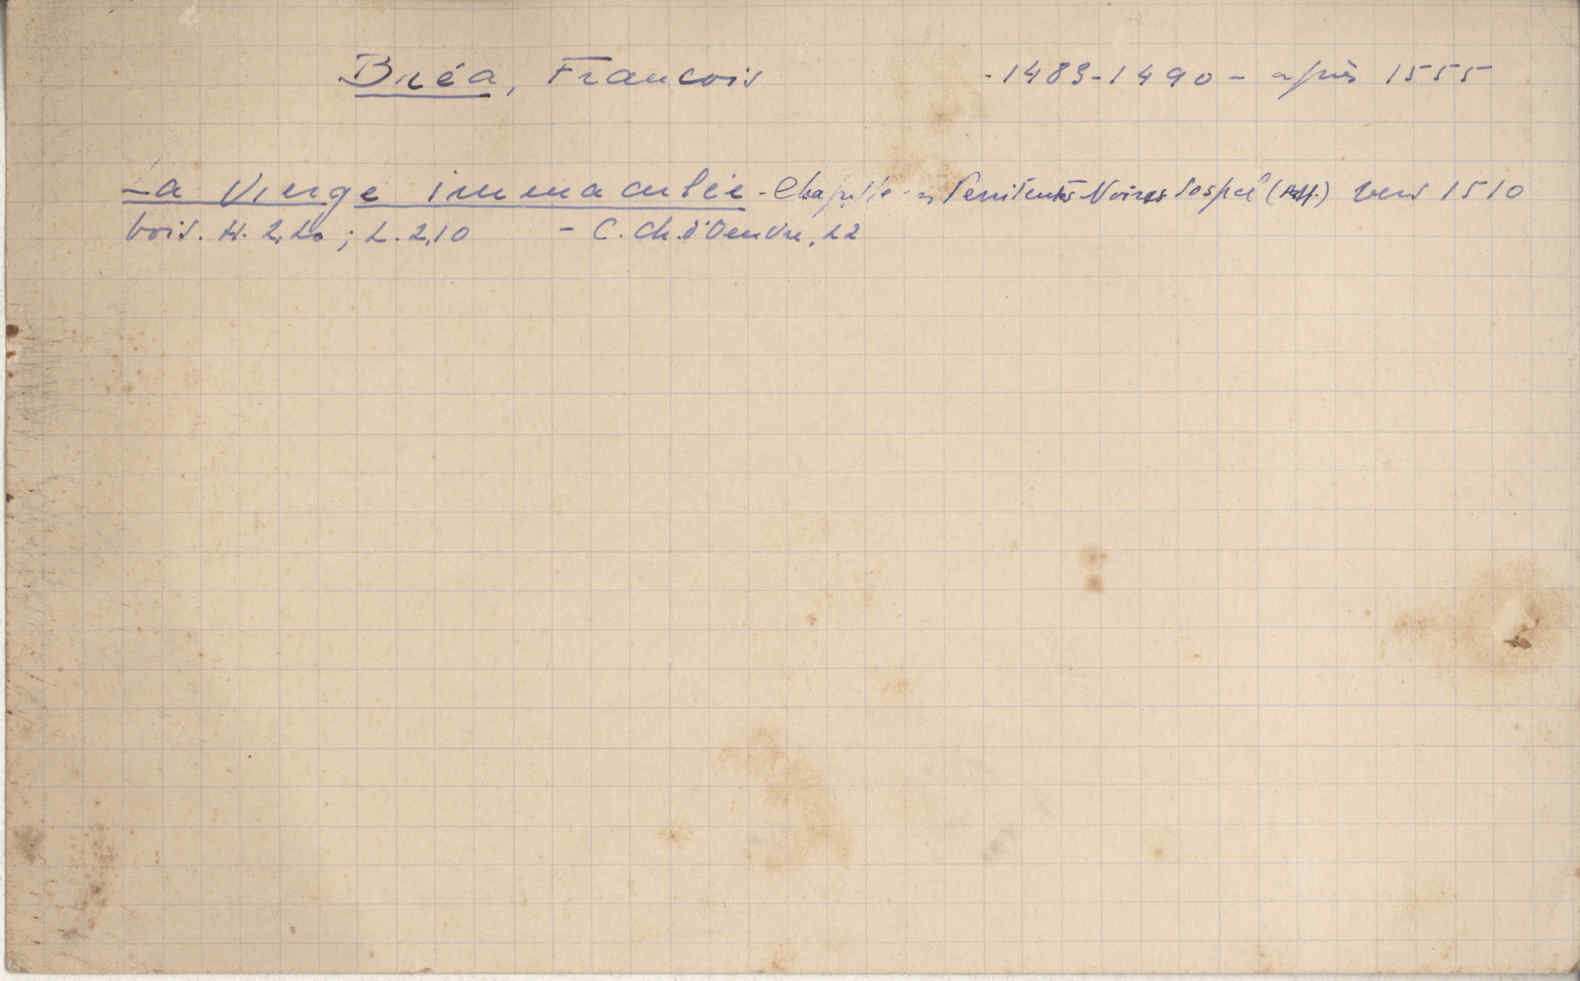 Bréa, Francois - 1483-1490 - après 1555
La Vierge immaculée - Chapelle Penitents Noirs Sospel vers 1510
bois. H. 2,20 ; L. 2,10 - C. Ch.